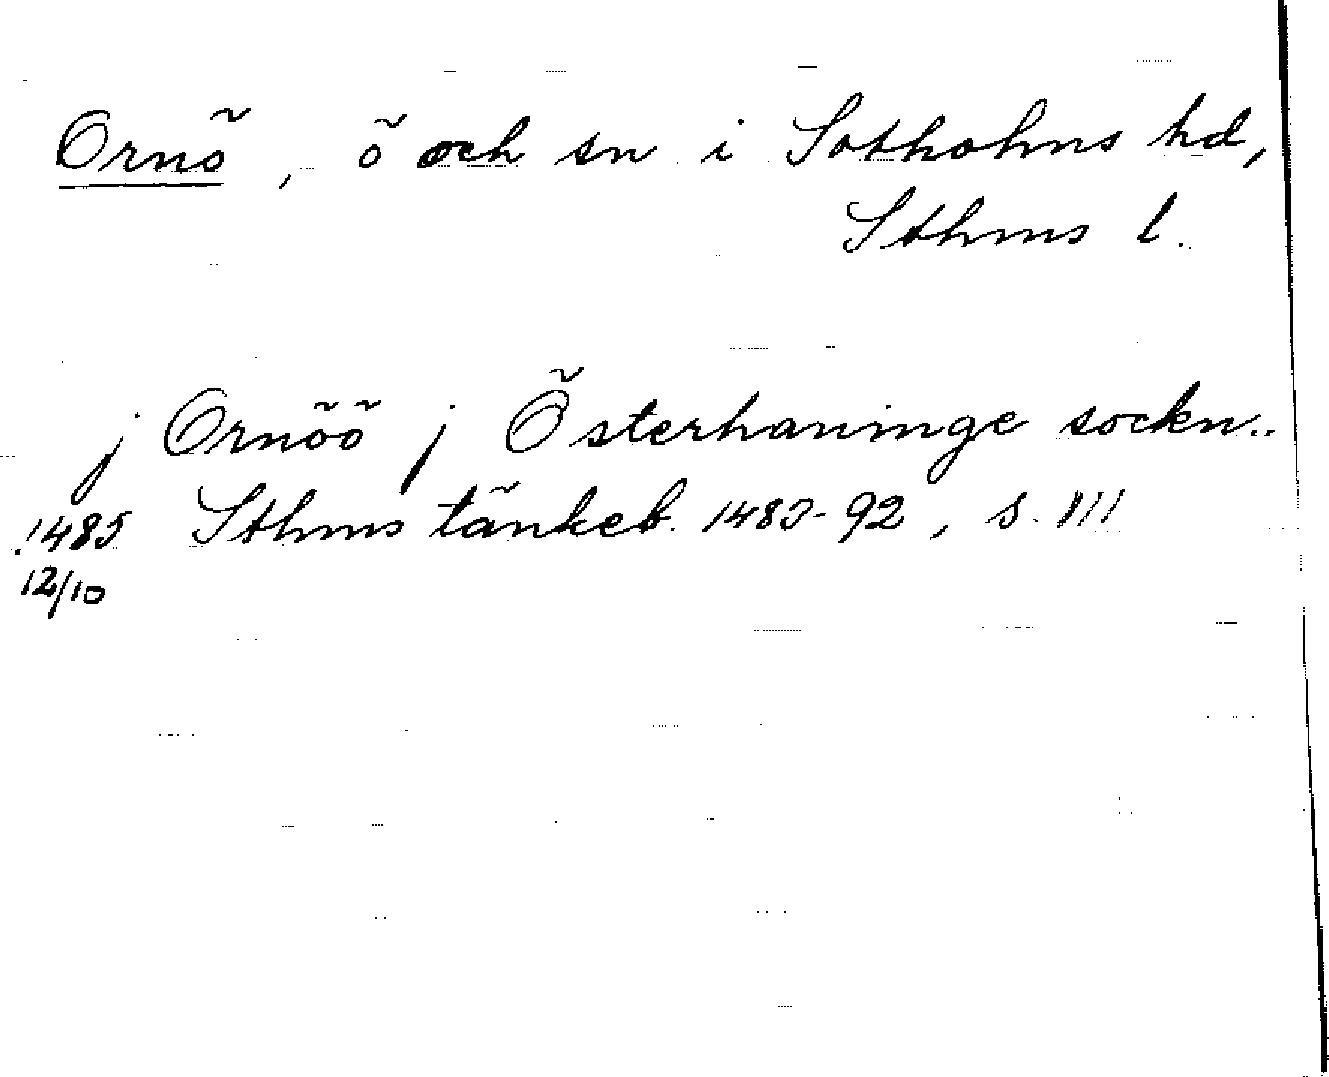 Ornö, ö och sn i Sotholms hd,
Sthms l.
j Ornöö j Österhaninge sockn..
1485 Sthms tänkeb. 1483-92, s. 111
12/10